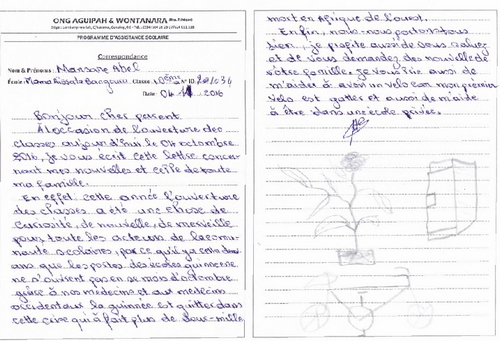 ONG AGUIPAH & WONTANARA
PROGRAMME D'ASSISTANCE SCOLAIRE
Correspondance
Nom & Prénoms : Mansaré Abel
École : Mama Aïssata Bacquan Classe : 10ème N° ID
Date : 04 11 2016
Bonjour cher parent.
À l'occasion de l'ouverture des
classes aujourd'hui le 04 octombre
2016, je vous écrit cette lettre concer
nant mes nouvelles et celle de toute
ma famille.
En effet cette année l'ouverture
des classes a été une chose de
curiosité, de nouvelle, de merveille
pour toute les acteurs de la commu
nauté scolaires, par ce qu'il y a cette deux
ans que les portes des écoles guinéenne
ne s'ouvrent pas en se mois d'octombre
grâce à nos médecins et aux médecins
occidentaux la guinnée est quitter dans
cette crise qui à fait plus de deux-mille
mort en Afrique de l'ouest.
Enfin, nous nous portons tous
bien, je profite aussi de vous saluez
et de vous demandez des nouvelle de
vôtre famille. Je vous prie aussi de
m'aider à avoir un velo car mon premier
velo est gatter et aussi de m'aidé
à être dans une école privée.